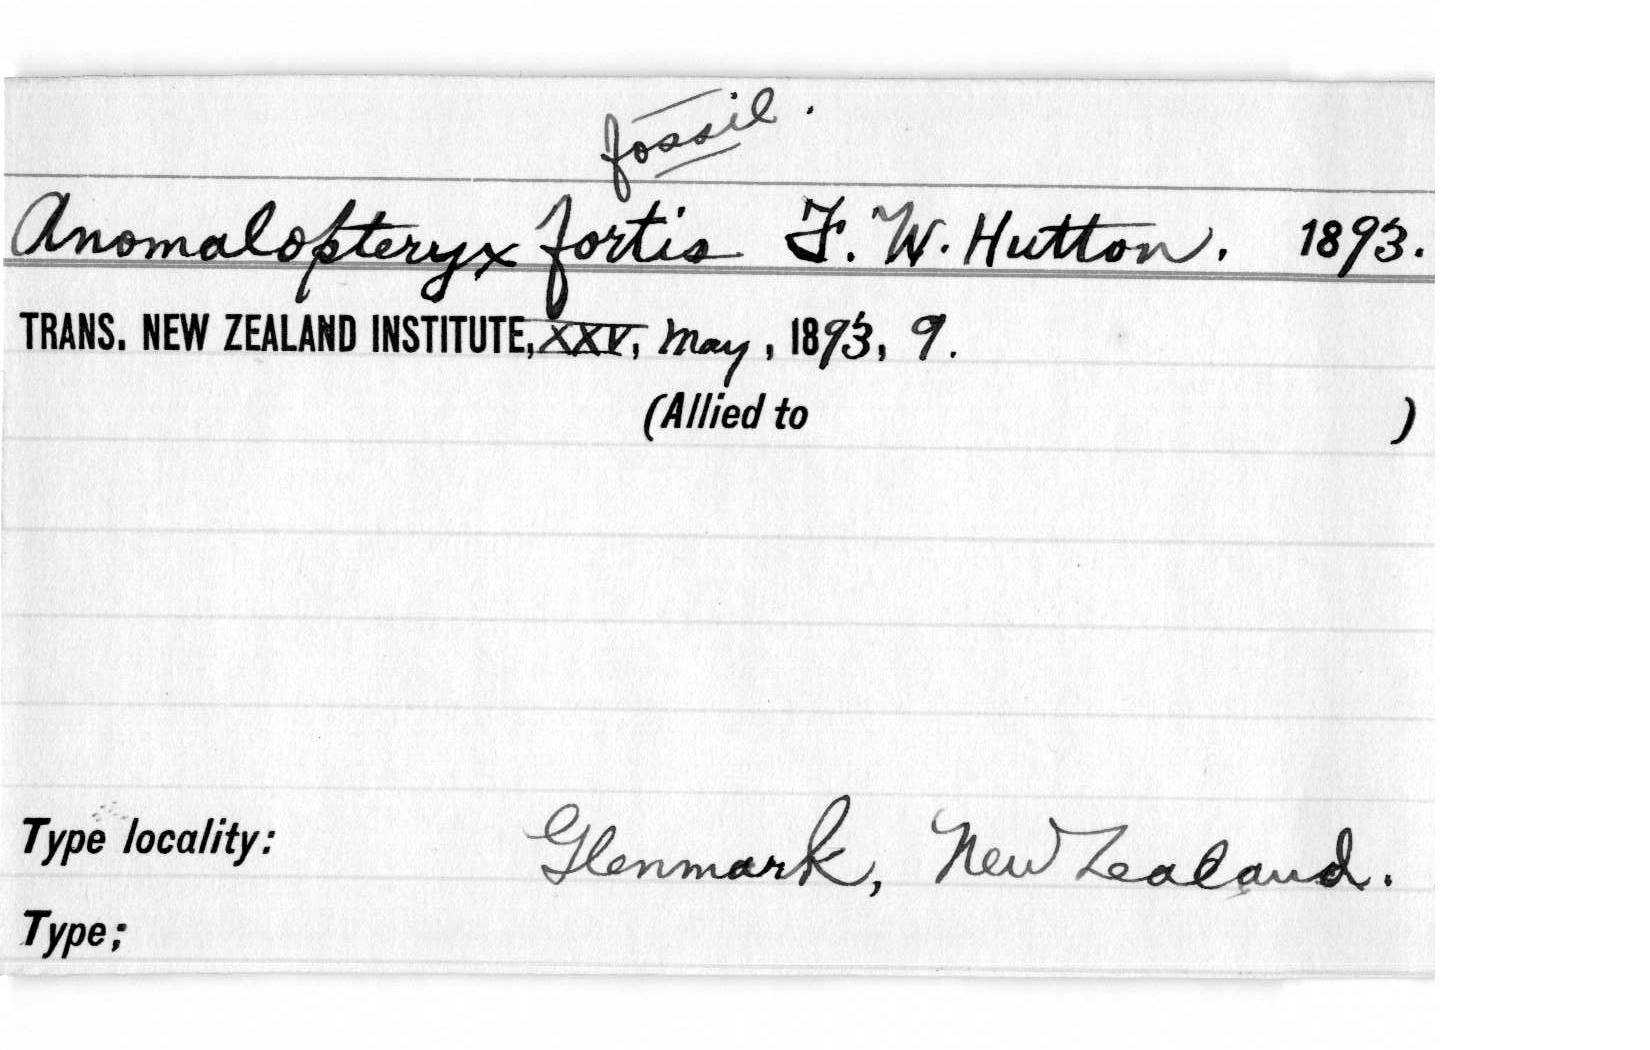 fossil.
Anomalopteryx fortis F. W. Hutton. 1893.
TRANS. NEW ZEALAND INSTITUTE, XXV, May, 1893, 9.
(Allied to )
Type locality: Glenmark, New Zealand.
Type;